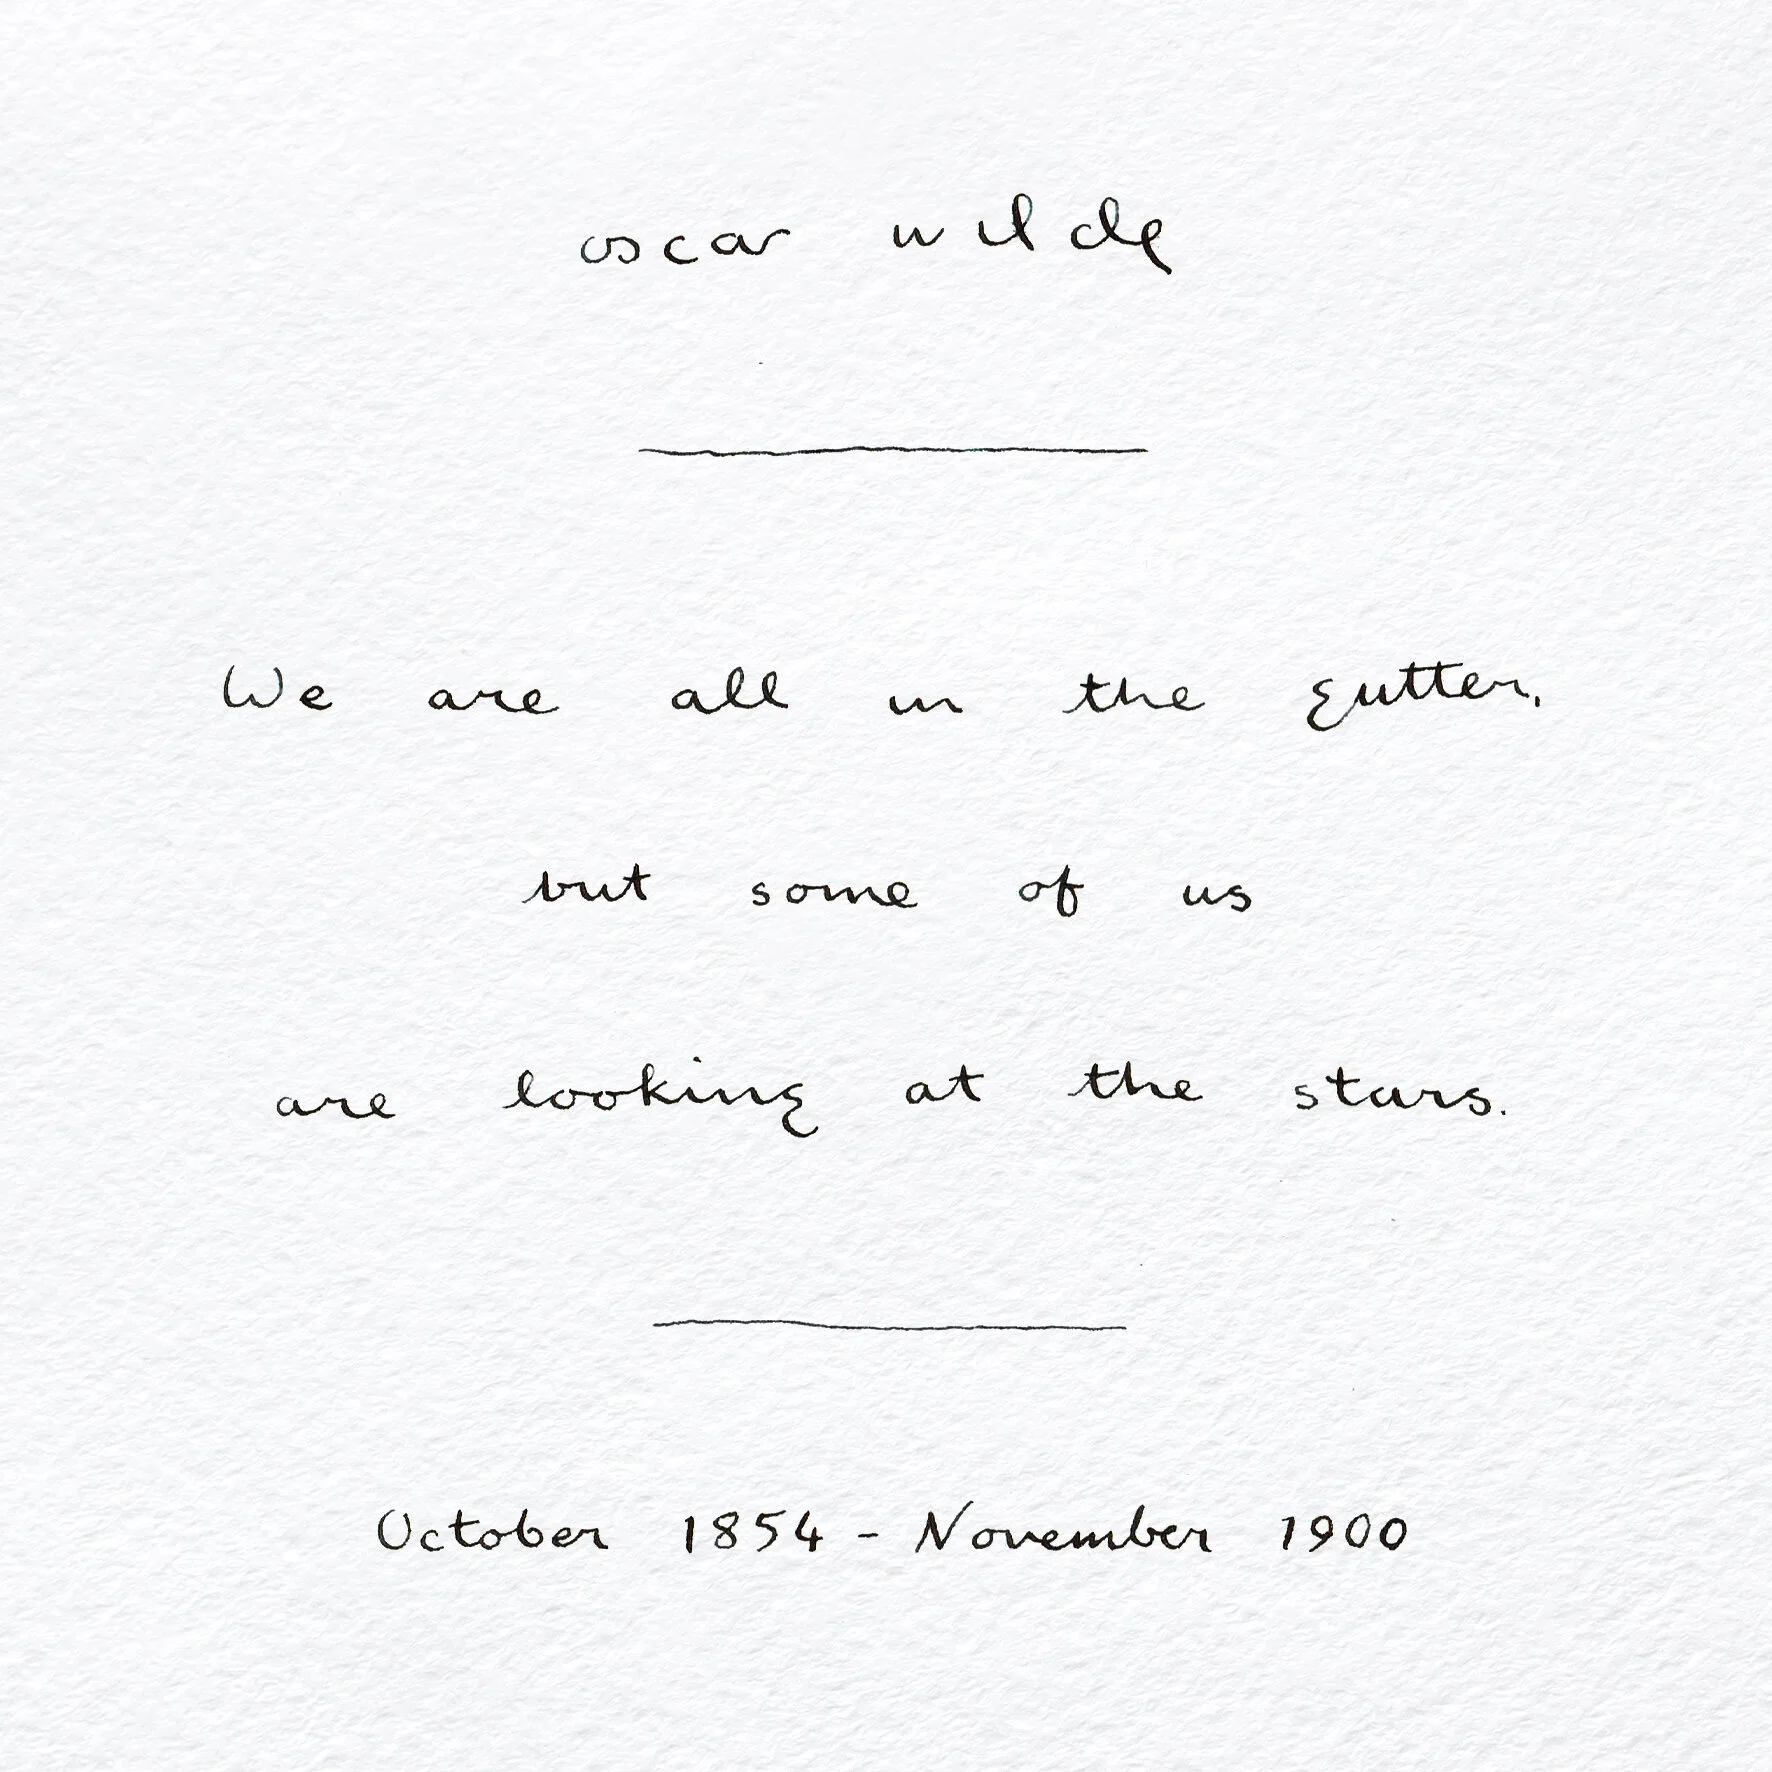 oscar wilde
We are all in the gutter,
but some of us
are looking at the stars.
October 1854 - November 1900